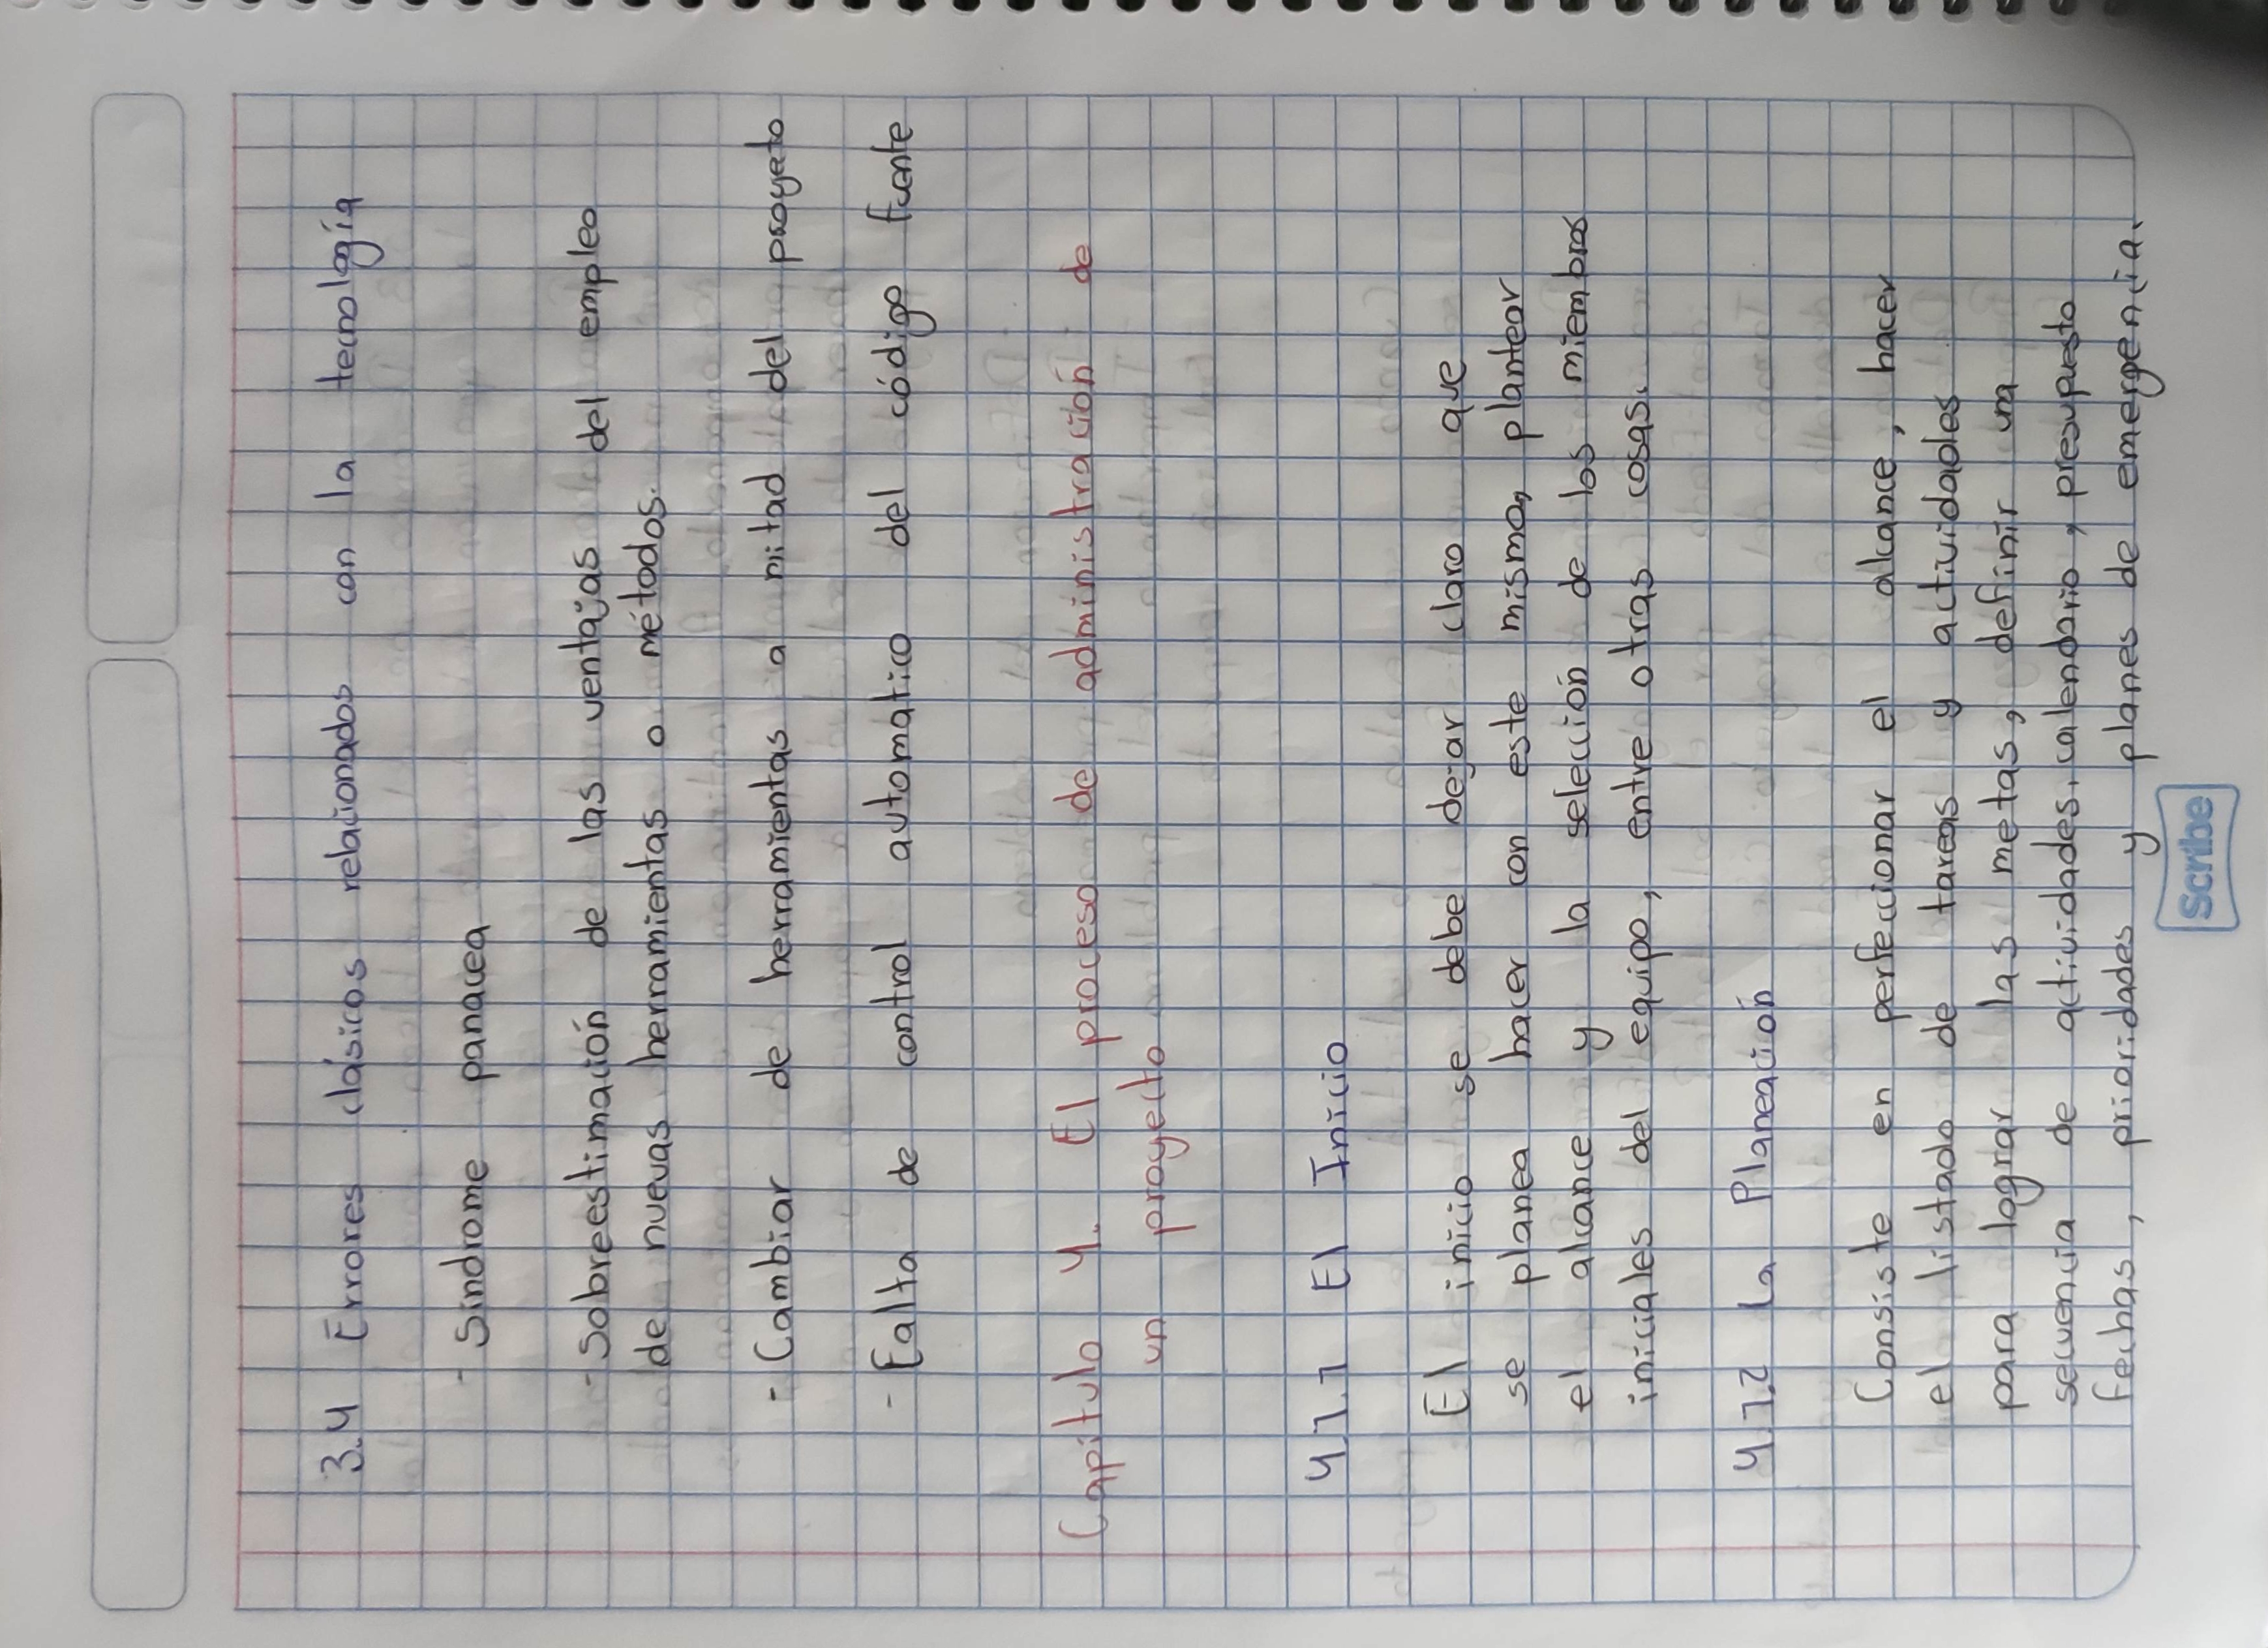 3.4 Errores clásicos relacionados con la tecnología
- Sindrome panacea
- Sobreestimación de las ventajas del empleo
de nuevas herramientas o métodos.
- Cambiar de herramientas a mitad del proyeto
- Falta de control automatico del código fuente
Capitulo 4. El proceso de administración de
un proyecto
4.1.1 El Inicio
El inicio se debe dejar claro que
se planea hacer con este mismo, plantear
el alcance y la selección de los miembros
iniciales del equipo, entre otras cosas.
4.1.2 La Planeación
Consiste en perfeccionar el alcance, hacer
el listado de tareas y actividades
para lograr las metas, definir una
secuencia de actividades, calendario, presupuesto
fechas, prioridades y planes de emergencia.
Scribe